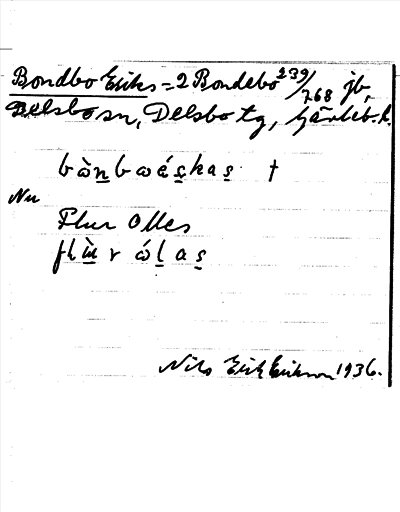 Bondbo Eriks = 2 Bondebo 239/268 jb,
Delsbo sn, Delsbo tg, Gävleb. l.
bὼn̲bωάs̲kas̲ †
Nu
Flur Olles
flὺ̲r ώl̲as̲
Nils Erik Erikson 1936.